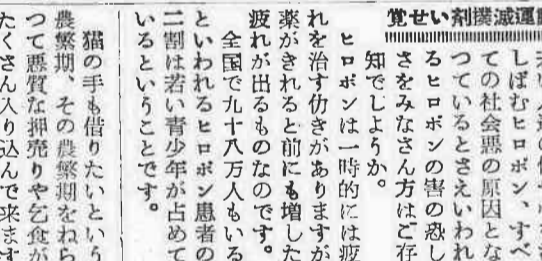 覚せい剤撲滅運
しぼむヒロポン、すべ
ての社会悪の原因とな
つているとさえいわれ
るヒロポンの害の恐し
さをみなさん方はご存
知でしようか。
ヒロポンは一時的には疲
れを治す仂きがありますが
薬がきれると前にも増した
疲れが出るものなのです。
全国で九十八万人もいる
といわれるヒロポン患者の
二割は若い青少年が占めて
いるということです。
猫の手も借りたいという
農繁期、その農繁期をねら
つて悪質な押売りや乞食が
たくさん入り込んで来ます